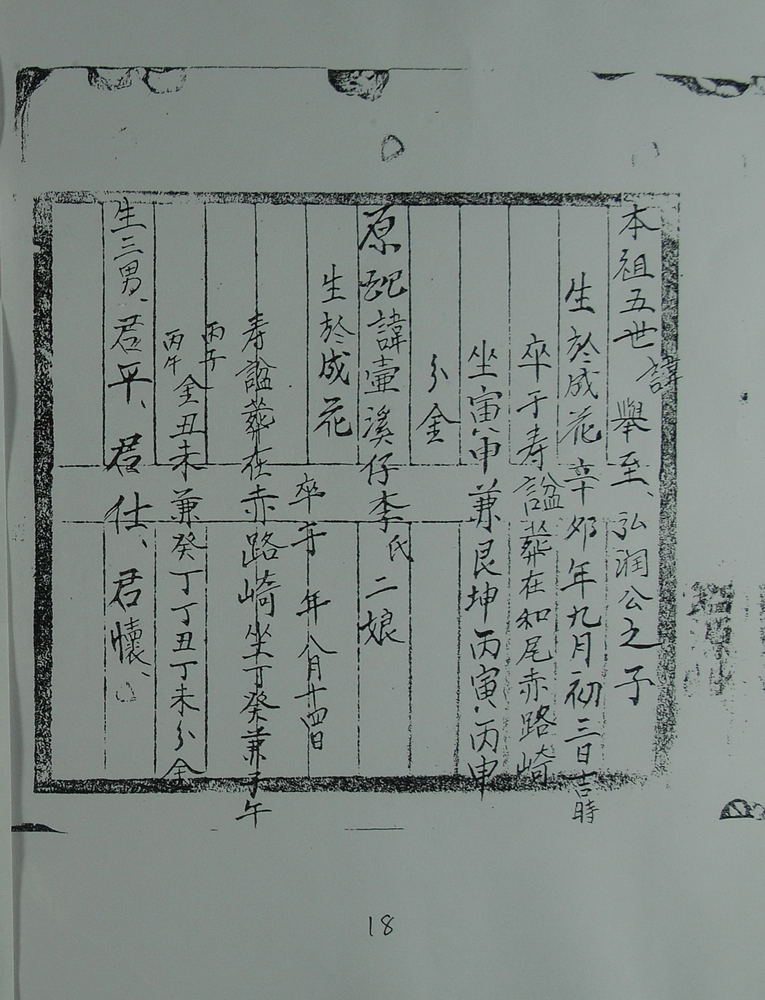 本祖五世諱舉至、弘润公之子
生於成花辛夘年九月初三日吉時
卒于寿諡葬在和尾赤路崎
坐寅申兼艮坤丙寅丙申
分金
原配諱壷溪仔李氏二娘
生於成花
卒于 年八月廿四日
寿諡葬在赤路崎坐丁癸兼子午
丙子
丙午
金丑未兼癸丁丁丑丁未分金
生三男、君平、君仕、君懷、
18